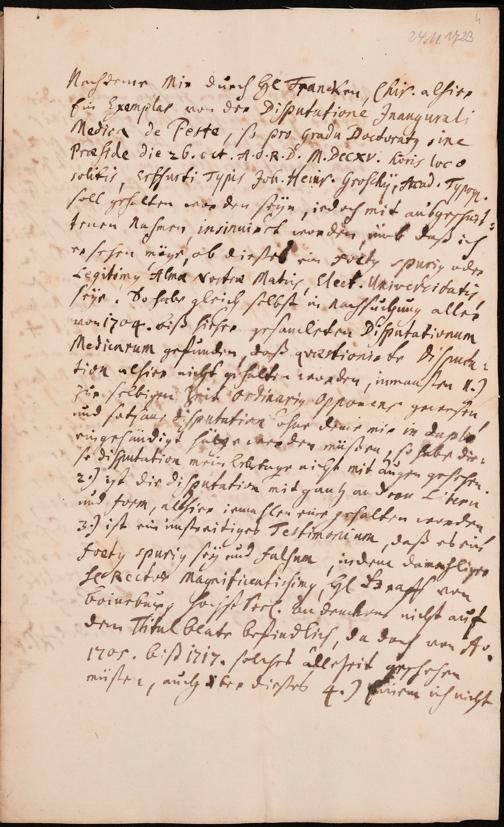 4
24.11.1723
Nachdeme Mir durch HE. Francken, Chir. alhier
Ein Exemplar von der Disputatione Inaugurali
Medica de Peste, so pro Gradu Doctoratq sine
Præside die 26. oct. A. d. R. D. M.DCCXV. horis loco
solitis, Erffurti Typis Joh. Heinr. Groschij, Acad. Typog.
soll gehalten worden seyn, jedoch mit
Nahmen insinuirt worden, umb daß ich
ersehen möge, ob dießes ein foetq spuriq oder
Legitimq Almæ nostræ Matris, Elect. Universitatis
seye. So habe gleich selbst in Nachsuchung aller
von 1704. biß hieher gesamleten Disputationum
Medicarum gefunden, daß quæstionirte Disputa-
tion alhier nicht gehalten worden, inmaßen 1.)
zur selbigen Zeit Ordinariq Opponens gewesen
und disputation ohne deme mir in duplo
eingehändigt werden müßen, so habe die-
se disputation mein Lebtage nicht mit augen gesehen.
2.) ist die disputation mit gantz andern Litern
und form, alhier iemahlen eine gehalten worden
3.) ist ein unstreitiges Testimonium, daß es ein
foetq spuriq sey und falsum, indem dammahliger
HE Rector Magnificentissimq, HE. Graff von
Boineburg höchst Seel. andenckens nicht auf
dem Titul blate befindlich, da doch von Ao.
1705. biß 1717. solches allezeit geschehen
müßen, auch über dießes 4.) ich nicht